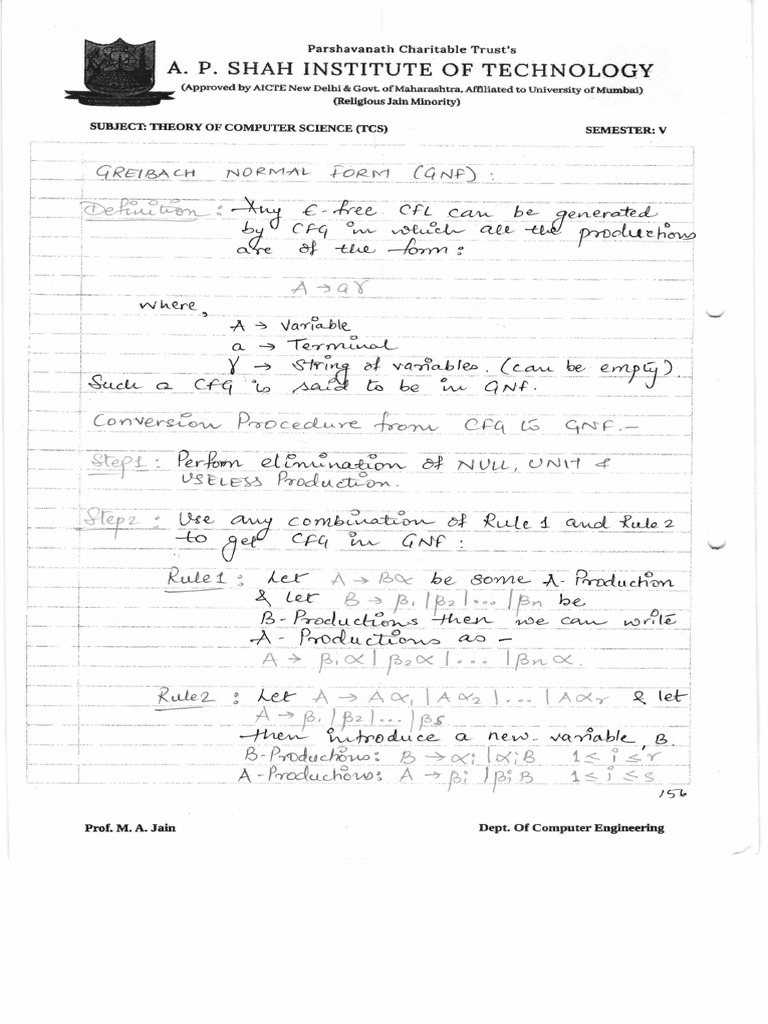 Parshavanath Charitable Trust's
A. P. SHAH INSTITUTE OF TECHNOLOGY
(Approved by AICTE New Delhi & Govt. of Maharashtra, Affiliated to University of Mumbai)
(Religious Jain Minority)
SUBJECT: THEORY OF COMPUTER SCIENCE (TCS) SEMESTER: V
GREIBACH NORMAL FORM (GNF) :
Definition : Any ϵ-free CFL can be generated
by CFG in which all the productions
are of the form :
A → aγ
where,
A → Variable
a → Terminal
γ → String of variables. (can be empty).
Such a CFG is said to be in GNF.
Conversion Procedure from CFG to GNF.-
Step1 : Perform elimination of NULL, UNIT &
USELESS Production.
Step2 : Use any combination of Rule 1 and Rule 2
to get CFG in GNF :
Rule1 : Let A → Bα be some A-Production
& let B → β1 | β2 | ... | βn be
B-Productions then we can write
A-Productions as -
A → β1α | β2α | ... | βnα.
Rule2 : Let A → Aα1 | Aα2 | ... | Aαr & let
A → β1 | β2 | ... | βs
then introduce a new variable, B.
B-Productions: B → αi | αiB 1 ≤ i ≤ r
A-Productions: A → βi | βiB 1 ≤ i ≤ s
156
Prof. M. A. Jain Dept. Of Computer Engineering